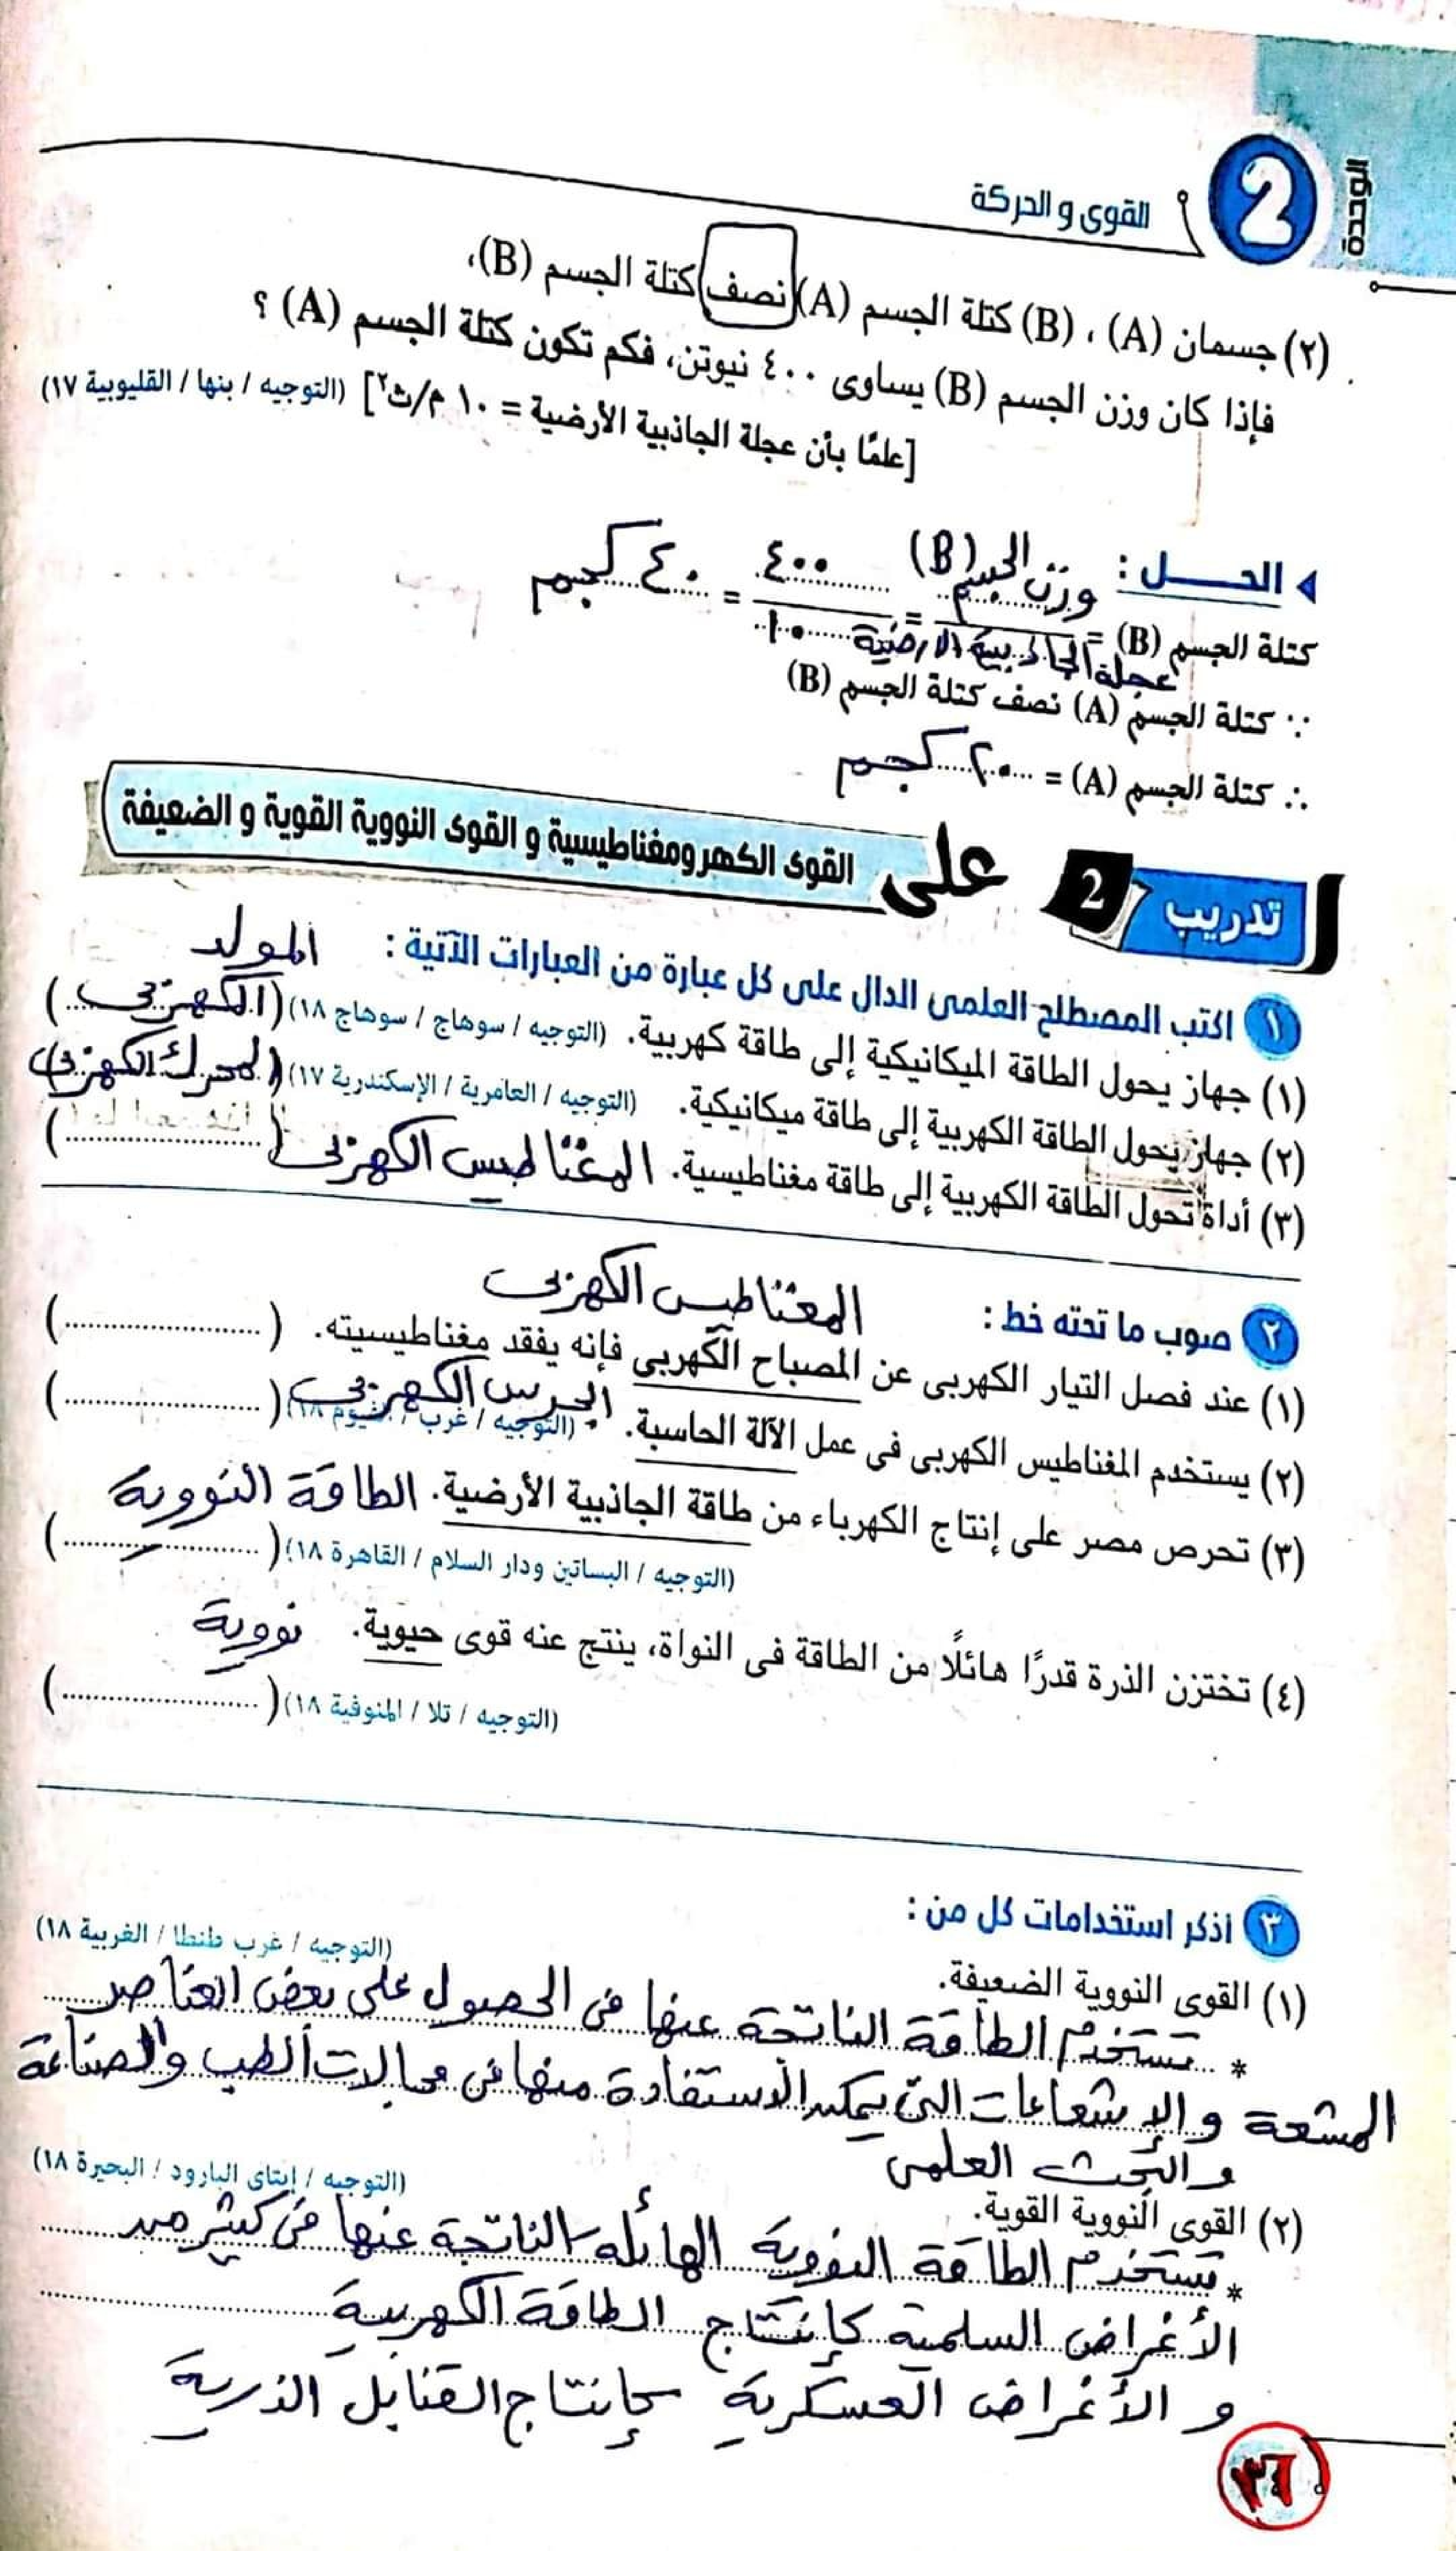 الوحدة
2
القوى و الحركة
(٢) جسمان (A) ، (B) كتلة الجسم (A) نصف كتلة الجسم (B)،
فإذا كان وزن الجسم (B) يساوى ٤٠٠ نيوتن، فكم تكون كتلة الجسم (A) ؟
[علمًا بأن عجلة الجاذبية الأرضية = ١٠ م/ث٢] (التوجيه / بنها / القليوبية ١٧)
الحـــل :
كتلة الجسم (B) = وزن الجسم (B) / عجلة الجاذبية الارضية = ٤٠٠ / ١٠ = ٤٠ كجم
∵ كتلة الجسم (A) نصف كتلة الجسم (B)
∴ كتلة الجسم (A) = ٢٠ كجم
تدريب 2 على القوى الكهرومغناطيسية و القوى النووية القوية و الضعيفة
١ اكتب المصطلح العلمى الدال على كل عبارة من العبارات الآتية : المولد
(١) جهاز يحول الطاقة الميكانيكية إلى طاقة كهربية. (التوجيه / سوهاج / سوهاج ١٨) (الكهربى)
(٢) جهاز يحول الطاقة الكهربية إلى طاقة ميكانيكية. (التوجيه / العامرية / الإسكندرية ١٧) (المحرك الكهربى)
(٣) أداة تحول الطاقة الكهربية إلى طاقة مغناطيسية. المغناطيس الكهربى (..............)
٢ صوب ما تحته خط : المغناطيس الكهربى
(١) عند فصل التيار الكهربى عن المصباح الكهربى فإنه يفقد مغناطيسيته. (..............)
(٢) يستخدم المغناطيس الكهربى فى عمل الآلة الحاسبة. الجرس الكهربى (التوجيه / غرب / الفيوم ١٨) (..............)
(٣) تحرص مصر على إنتاج الكهرباء من طاقة الجاذبية الأرضية. الطاقة النووية
(التوجيه / البساتين ودار السلام / القاهرة ١٨) (..............)
(٤) تختزن الذرة قدرًا هائلًا من الطاقة فى النواة، ينتج عنه قوى حيوية. نووية
(التوجيه / تلا / المنوفية ١٨) (..............)
٣ اذكر استخدامات كل من :
(١) القوى النووية الضعيفة. (التوجيه / غرب طنطا / الغربية ١٨)
* تستخدم الطاقة الناتجة عنها فى الحصول على بعض العناصر
المشعة والإشعاعات التى يمكن الاستفادة منها فى مجالات الطب والصناعة
والبحث العلمى
(٢) القوى النووية القوية. (التوجيه / إيتاى البارود / البحيرة ١٨)
* تستخدم الطاقة النووية الهائله الناتجة عنها فى كثير من
الأغراض السلمية كإنتاج الطاقة الكهربية
و الأغراض العسكرية كإنتاج القنابل الذرية
٣٦